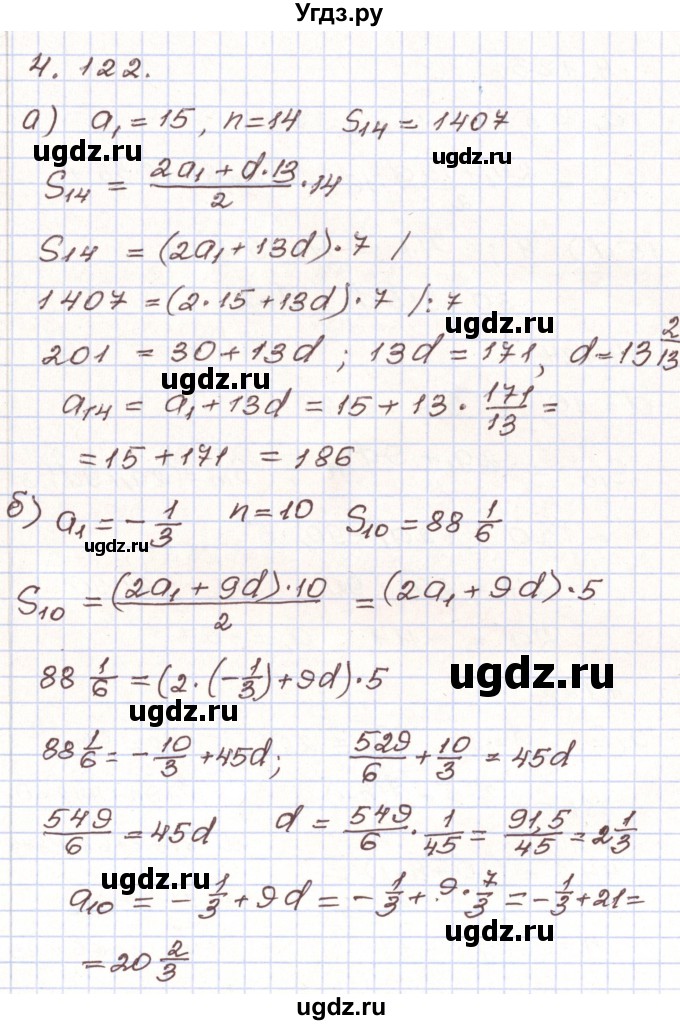 Угдз.ру
4. 122.
а) a₁ = 15, n=14 S₁₄ = 1407
ugdz.ru ugdz.ru
S₁₄ = (2a₁ + d·13)/2 · 14
S₁₄ = (2a₁ + 13d)·7 /
1407 = (2·15 + 13d)·7 /:7
ugdz.ru
201 = 30 + 13d ; 13d = 171, d = 13 2/13
ugdz.ru
a₁₄ = a₁ + 13d = 15 + 13 · 171/13 =
= 15 + 171 = 186
б) a₁ = - 1/3 n = 10 S₁₀ = 88 1/6
ugdz.ru
S₁₀ = (2a₁ + 9d)·10/2 = (2a₁ + 9d)·5
88 1/6 = (2·(-1/3) + 9d)·5
ugdz.ru
ugdz.ru
88 1/6 = - 10/3 + 45d; 529/6 + 10/3 = 45d
549/6 = 45d d = 549/6 · 1/45 = 91,5/45 = 2 1/3
ugdz.ru
a₁₀ = - 1/3 + 9d = - 1/3 + 9 · 7/3 = - 1/3 + 21 =
ugdz.ru
= 20 2/3
ugdz.ru